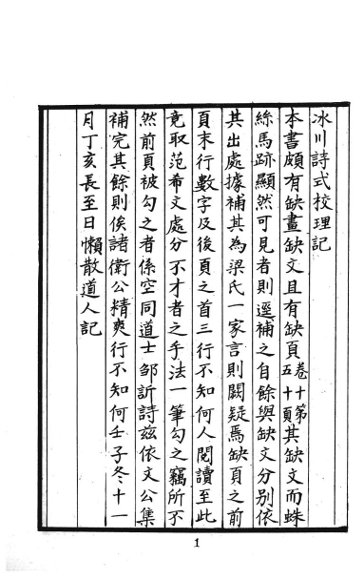 冰川詩式校理記
本書頗有缺畫缺文且有缺頁卷十第五十頁其缺文而蛛
絲馬跡顯然可見者則逕補之自餘與缺文分別依
其出處據補其為梁氏一家言則闕疑焉缺頁之前
頁末行數字及後頁之首三行不知何人閱讀至此
竟取范希文處分不才者之手法一筆勾之竊所不
然前頁被勾之者係空同道士鄒訢詩茲依文公集
補完其餘則俟諸衛公精爽行不知何壬子冬十一
月丁亥長至日懶散道人記
1